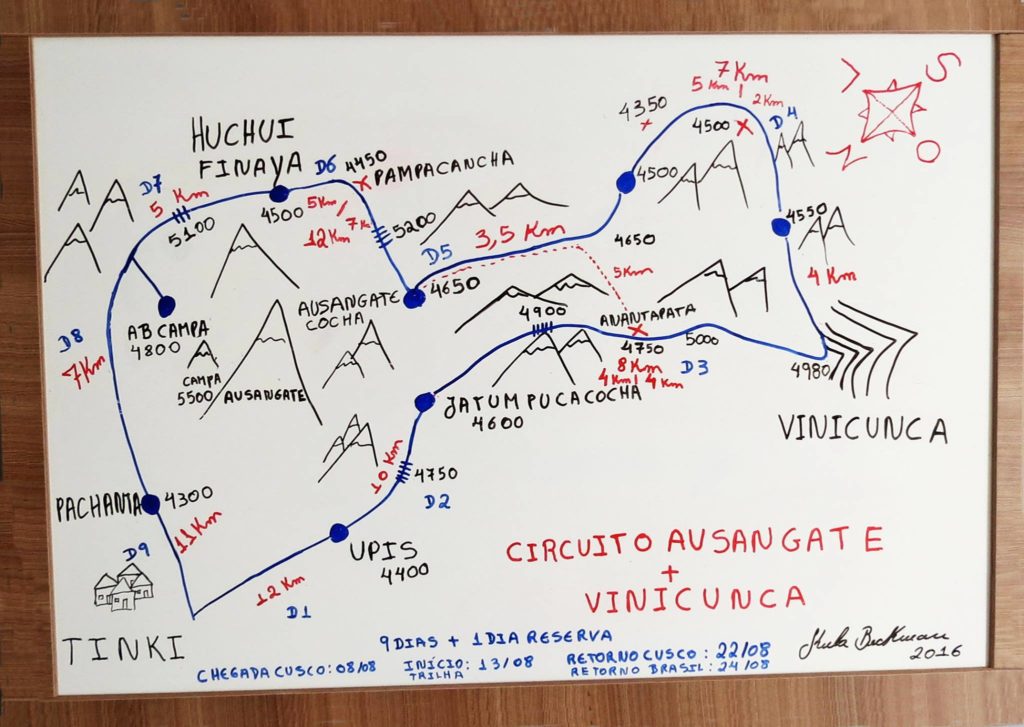 7 Km
5 Km | 2 Km
S
L
N
O
4350
4500
D4
HUCHUI
FINAYA
D6
4450
PAMPACANCHA
D7
5 Km
5100
4500
5 Km / 7 Km
12 Km
5200
D5
3,5 Km
4500
4550
4 Km
4650
5 Km
AUSANGATE
COCHA
4650
AB CAMPA
4800
CAMPA
5500
AUSANGATE
4900
ANANTAPATA
4750
5000
D3
8 Km
4 Km | 4 Km
4980
VINICUNCA
D8
7 Km
JATUMPUCACOCHA
4600
10 Km
4750
D2
PACHANTA
4300
11 Km
D9
UPIS
4400
12 Km
D1
TINKI
CIRCUITO AUSANGATE
+
VINICUNCA
9 DIAS + 1 DIA RESERVA
CHEGADA CUSCO: 08/08
INÍCIO: 13/08
TRILHA
RETORNO CUSCO: 22/08
RETORNO BRASIL: 24/08
2016